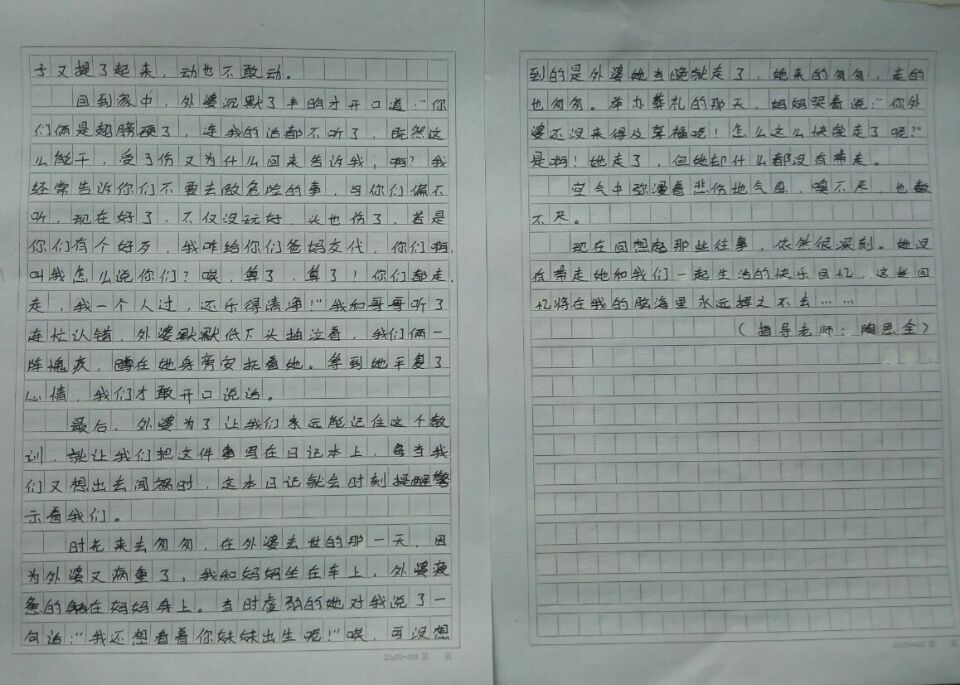 子又提了起来，动也不敢动。
回到家中，外婆沉默了半晌才开口道："你
们俩是翅膀硬了，连我的话都不听了，既然这
么能干，受了伤又为什么回来告诉我，啊？我
经常告诉你们不要去做危险的事，可你们偏不
听，现在好了，不仅没玩好，头也伤了，若是
你们有个好歹，我咋给你们爸妈交代，你们啊，
叫我怎么说你们？唉，算了，算了！你们都走，
走，我一个人过，还乐得清净！"我和哥哥听了
连忙认错，外婆默默低下头抽泣着，我们俩一
阵愧疚，蹲在她身旁安抚着她。等到她平复了
心情，我们才敢开口说话。
最后，外婆为了让我们永远能记住这个教
训，就让我们把这件事写在日记本上，每当我
们又想出去闯祸时，这本日记就会时刻提醒警
示着我们。
时光来去匆匆，在外婆去世的那一天，因
为外婆又病重了，我和妈妈坐在车上，外婆疲
惫的躺在妈妈身上。当时虚弱的她对我说了一
句话："我还想看着你妹妹出生呢！"唉，可没想
20x20=400
到的是外婆她当晚就走了，她来的匆匆，走的
也匆匆。举办葬礼的那天，妈妈哭着说："你外
婆还没来得及享福呢！怎么这么快就走了呢？"
是啊！她走了，但她却什么都没有带走。
空气中弥漫着悲伤地气息，嗅不尽，也散
不尽。
现在回想起那些往事，依然很深刻。她没
有带走她和我们一起生活的快乐回忆，这些回
忆将在我的脑海里永远挥之不去……
（指导老师：陶思全）